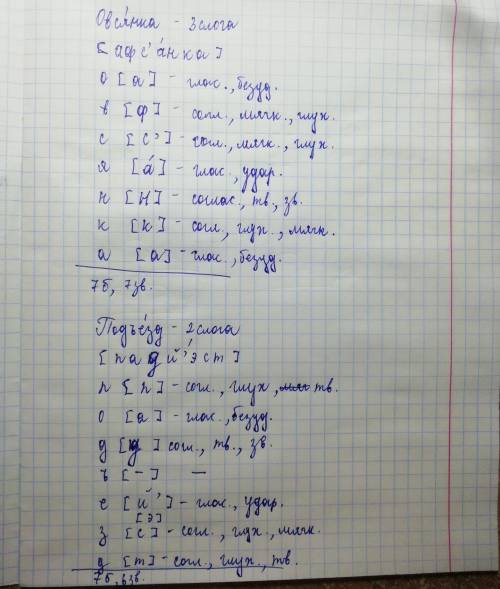 Овся́нка - 3 слога
[афс'а́нка]
о [а] - глас., безуд.
в [ф] - согл., мягк., глух.
с [с'] - согл., мягк., глух.
я [а́] - глас., удар.
н [н] - соглас., тв., зв.
к [к] - согл., глух., мягк.
а [а] - глас., безуд.
7б, 7зв.
Подъе́зд - 2 слога
[падй'э́ст]
п [п] - согл., глух, тв.
о [а] - глас., безуд.
д [д] согл., тв., зв.
ъ [-] —
е [й'] - глас., удар.
[э]
з [с] - согл., глух., мягк.
д [т] - согл., глух., тв.
7б, 6зв.